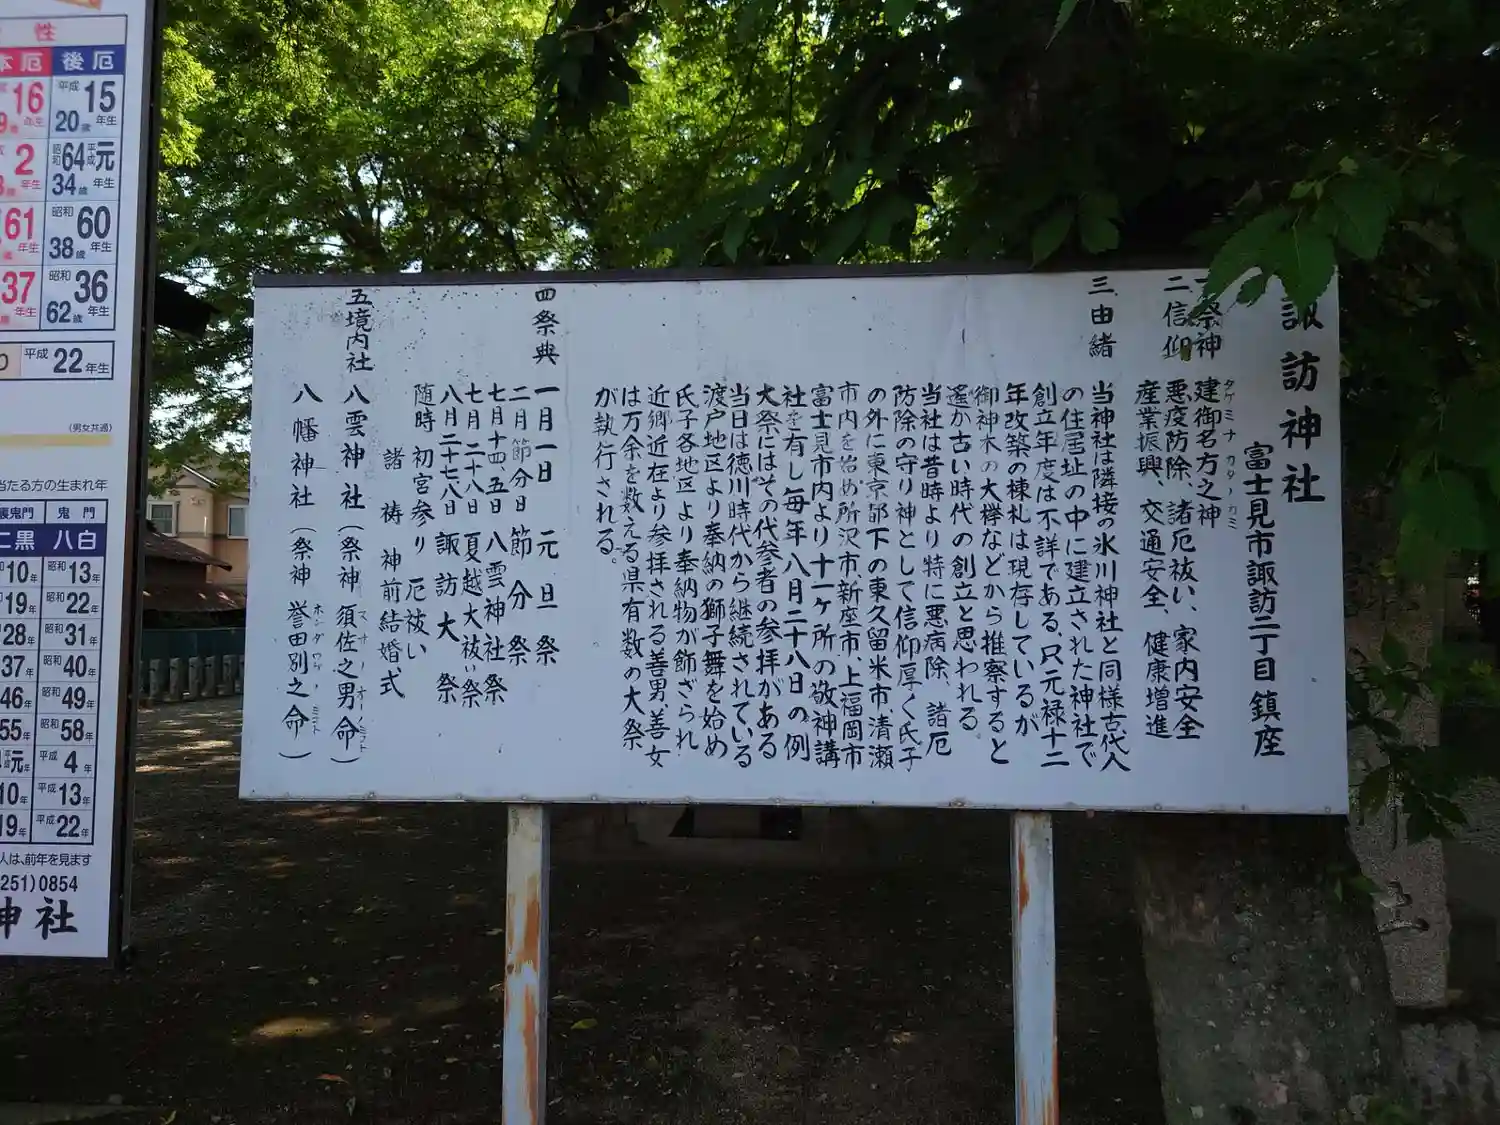 諏訪神社
富士見市諏訪二丁目鎮座
一祭神
建御名方之神
タケミナカタノカミ
二信仰
悪疫防除、諸厄祓い、家内安全
産業振興、交通安全、健康増進
三由緒
当神社は隣接の氷川神社と同様古代人
の住居址の中に建立された神社で
創立年度は不詳である、只元禄十二
年改築の棟札は現存しているが
御神木の大欅などから推察すると
遥か古い時代の創立と思われる。
当社は昔時より特に悪病除、諸厄
防除の守り神として信仰厚く氏子
の外に東京都下の東久留米市清瀬
市内を始め所沢市、新座市、上福岡市
富士見市内より十一ヶ所の敬神講
社を有し毎年八月二十八日の例
大祭にはその代参者の参拝がある
当日は徳川時代から継続されている
渡戸地区より奉納の獅子舞を始め
氏子各地区より奉納物が飾ざられ
近郷近在より参拝される善男、善女
は万余を数える県有数の大祭
が執行される。
四祭典
一月一日 元旦祭
二月節分日 節分祭
七月十四、五日 八雲神社祭
七月二十八日 夏越大祓い祭
八月二十七八日 諏訪大祭
随時 初宮参り 厄祓い
諸祷 神前結婚式
五境内社
八雲神社（祭神 須佐之男命）
スサノーオーノミコト
八幡神社（祭神 誉田別之命）
ホンダワケノミコト
性
本厄 後厄
16 平成15年生
20歳
2 昭和64平成元年生
34歳
61年生 昭和60年生
38歳
37年生 昭和36年生
62歳
平成22年生
(男女共通)
当たる方の生まれ年
裏鬼門 鬼門
二黒 八白
10年 昭和13年
19年 昭和22年
28年 昭和31年
37年 昭和40年
46年 昭和49年
55年 昭和58年
元年 平成4年
10年 平成13年
19年 平成22年
人は、前年を見ます
251)0854
神社